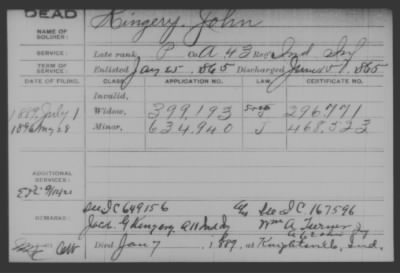 DEAD
NAME OF SOLDIER: Kingery, John
SERVICE: Late rank P. Co. A 43 Reg. Ind Inf
TERM OF SERVICE: Enlisted Jan 25, 1865 Discharged June 1865
DATE OF FILING. CLASS. APPLICATION NO. LAW. CERTIFICATE NO.
Invalid,
1889 July 1 Widow, 399.193 296.771
1896 May 28 Minor, 634.940 J 468.523
ADDITIONAL SERVICES:
See I C 649156 See I C. 167596
REMARKS: Jacob G Kingery A 11 Ind Wm A. Turner
Died Jan 7, 1889, at Knightsville, Ind.